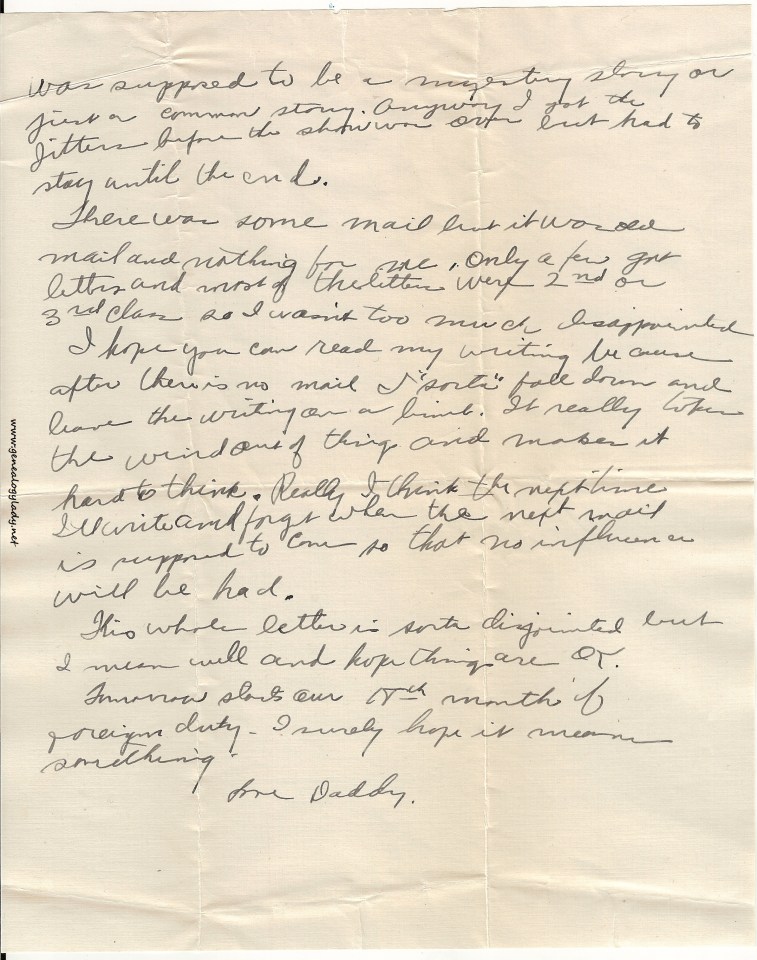 was supposed to be a mystery story or
just a common story. Anyway I got the
Jitters before the show was over but had to
stay until the end.
There was some mail but it was old
mail and nothing for me. Only a few got
letters and most of the letters were 2nd or
3rd Class so I wasn't too much disappointed
I hope you can read my writing because
after there is no mail I "sorta" fall down and
leave the writing on a limb. It really takes
the wind out of things and makes it
hard to think. Really I think the next time
I'll write and forget when the next mail
is supposed to come so that no influence
will be had.
This whole letter is sorta disjointed but
I mean well and hope things are OK.
Tomorrow starts our month of
foreign duty - I surely hope it means
something.
Love Daddy.
www.genealogylady.net